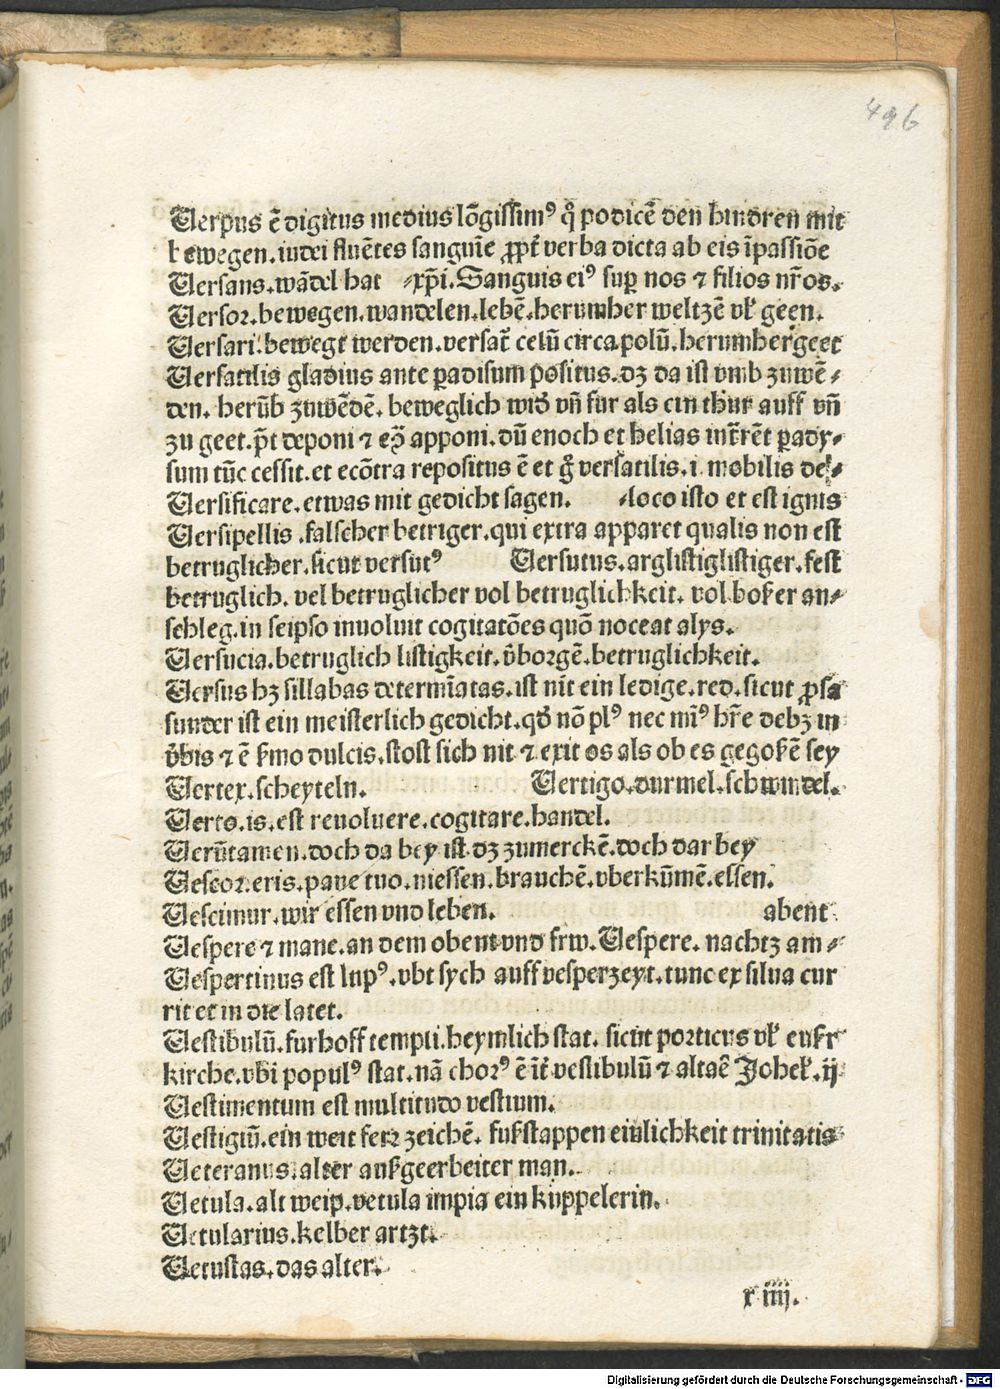 496
Uerpus ē digitus medius lōgissim⁹ q̊ podicē den hindren mit
bewegen. iudei fluētes sanguīe ꝓpt̄ verba dicta ab eis īpassiōe
Uersans. wādel hat ⸗xp̄i. Sanguis ei⁹ suꝑ nos ⁊ filios nr̄os.
Uersor. bewegen. wandelen. lebē. herumher weltzē vl̕ geen.
Uersari. bewegt werden. versat̄ celū circa polū. herumher geet
Uersatilis gladius ante ꝑadisum positus. dz da ist vmb zuwē⸗
den. herūb zuwēdē. beweglich wid̕ vn̄ fur als ein thur auff vn̄
zu geet. p̄t deponi ⁊ eꝫ apponi. dū enoch et helias intrēt ꝑady⸗
sum tūc cessit. et ecōtra repositus ē et g̊ versatilis. i. mobilis de⸗
Uersificare. etwas mit gedicht sagen. ⸗loco isto et est ignis
Uersipellis .falscher betriger. qui extra apparet qualis non est
betruglicher. sicut versut⁹ Uersutus. arglistiglistiger. fest
betruglich. vel betruglicher vol betruglichkeit. vol boßer an⸗
schleg. in seipso inuoluit cogitatōes quō noceat alys.
Uersucia. betruglich listigkeit. v̄borgē. betruglichkeit.
Uersus hz sillabas determīatas. ist nit ein ledige. red. sicut ꝓsa
sunder ist ein meisterlich gedicht. qd̕ nō pl⁹ nec mī⁹ hr̄e debz in
v̄bis ⁊ ē ßmo dulcis. stost sich nit ⁊ exit os als ob es gegoßē sey
Uertex. scheyteln. Uertigo. durmel. schwindel.
Uerto. is. est reuoluere. cogitare. handel.
Uerūtamen. doch da bey ist dz zumerckē. doch dar bey
Uescor. eris. pane tuo. niessen. brauchē. vberkūmē. essen.
Uescimur. wir essen vnd leben. abent
Uespere ⁊ mane. an dem obent vnd frw. Uespere. nachtz am⸗
Uespertinus est lup⁹. vbt sych auff vesperzeyt. tunc ex silua cur
rit et in die latet.
Uestibulū. furhoff templi. heymlich stat. sicut porticus vl̕ eußr
kirche. vbi popul⁹ stat. nā chor⁹ ē īt̄ vestibulū ⁊ altaē Johel̕. ij
Uestimentum est multitudo vestium.
Uestigiū. ein weit ferr zeichē. fußstappen einlichkeit trinitatis
Ueteranus. alter außgeerbeiter man.
Uetula. alt weip. vetula impia ein kuppelerin.
Uetularius. kelber artzt.
Uetustas. das alter.
x iiij.
Digitalisierung gefördert durch die Deutsche Forschungsgemeinschaft - DFG